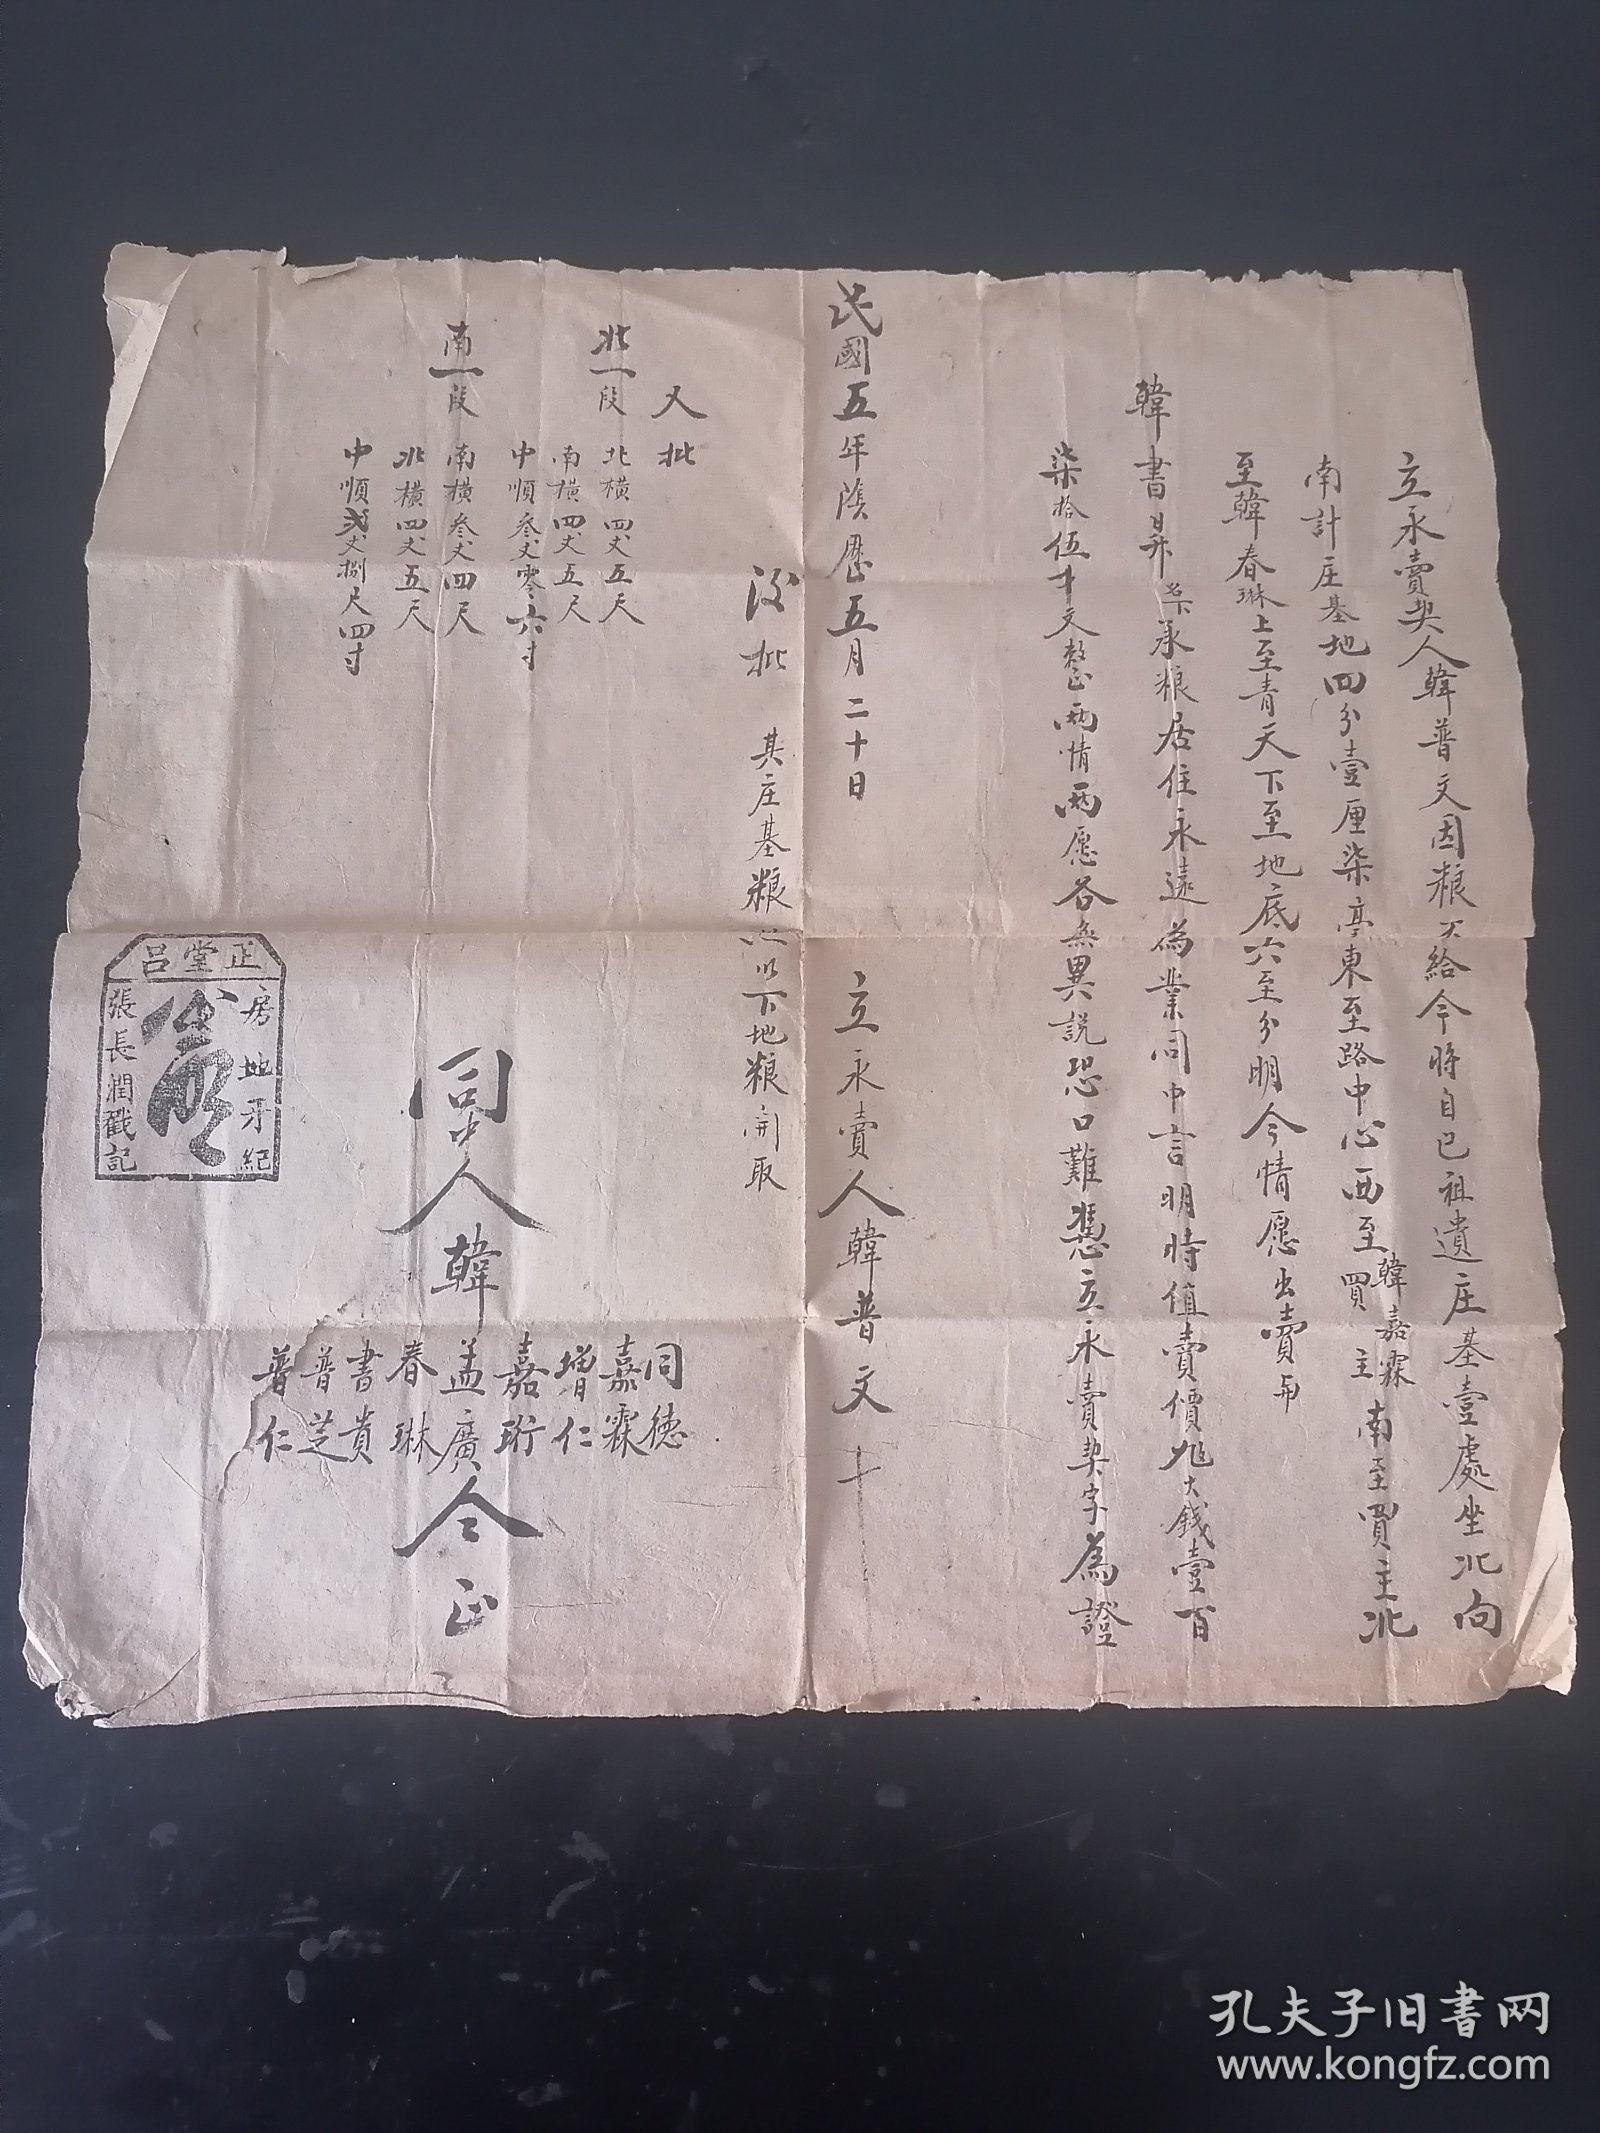 立永賣契人韓普文因粮不給今將自己祖遺庄基壹處坐北向
南計庄基地四分壹厘柒亳東至路中心西至韓嘉霖買主南至買主北
至韓春琳上至青天下至地底六至分明今情愿出賣与
韓書昇名下承粮居住永遠為業同中言明時值賣價九大錢壹百
柒拾伍千文整兩情兩愿各無異説恐口難憑立永賣契字為證
民國五年陰歷五月二十日 立永賣人韓普文 十
後批 其庄基粮以下地粮開取
又批
北一段 北横四丈五尺
南横四丈五尺
中順叁丈零六寸
南一段 南横叁丈四尺
北横四丈五尺
中順弍丈捌尺四寸
同中人韓
同德
嘉霖
增仁
嘉珩
孟廣
春琳
書貴
普芝
普仁
仝正
正堂呂
房地牙紀
張長潤戳記
孔夫子旧书网
www.kongfz.com